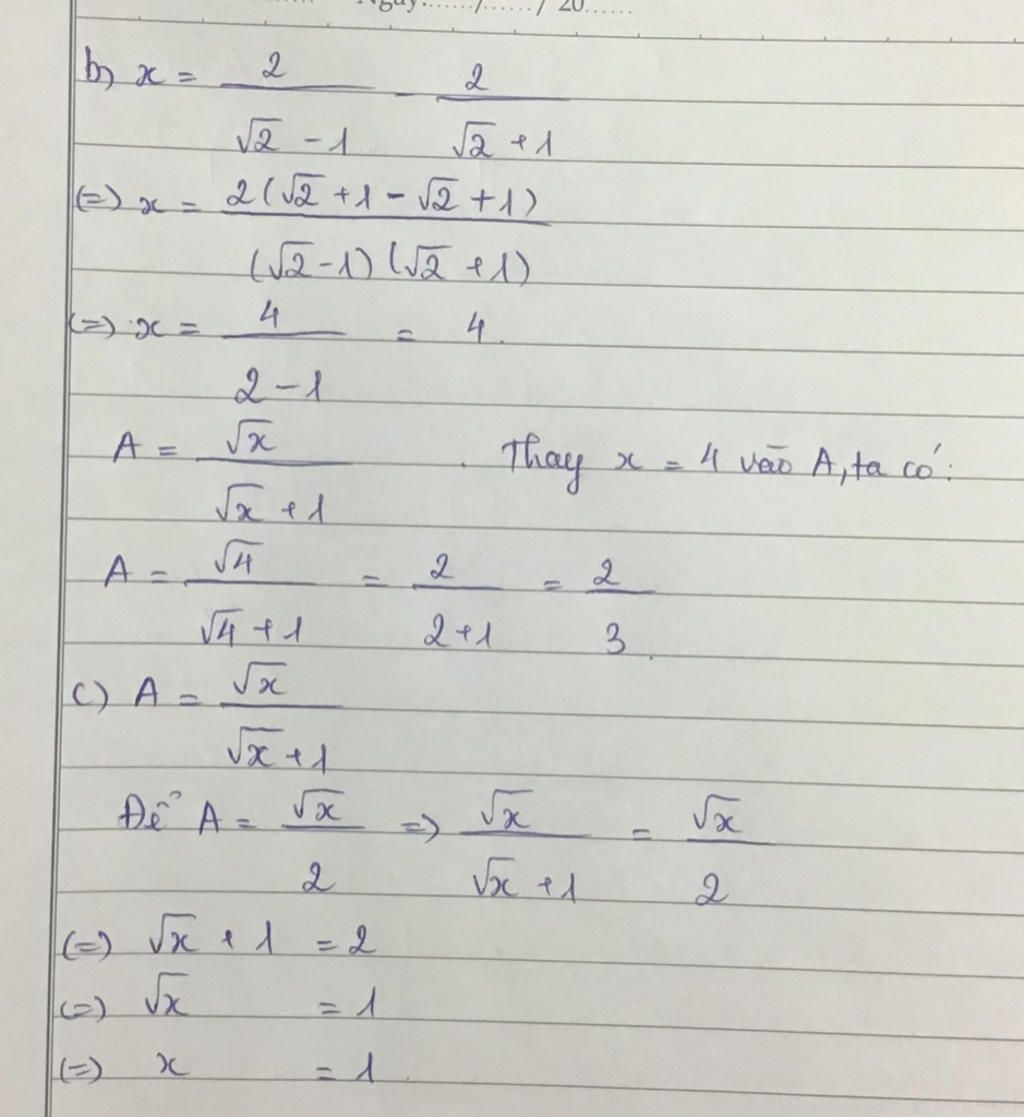 Ngày....../....../ 20......
b) x = 2/(√2 - 1) - 2/(√2 + 1)
(=) x = 2(√2 + 1 - √2 + 1)/((√2 - 1)(√2 + 1))
(=) x = 4/(2 - 1) = 4.
A = √x/(√x + 1). Thay x = 4 vào A, ta có:
A = √4/(√4 + 1) = 2/(2 + 1) = 2/3.
c) A = √x/(√x + 1)
Để A = √x/2 => √x/(√x + 1) = √x/2
(=) √x + 1 = 2
(=) √x = 1
(=) x = 1.